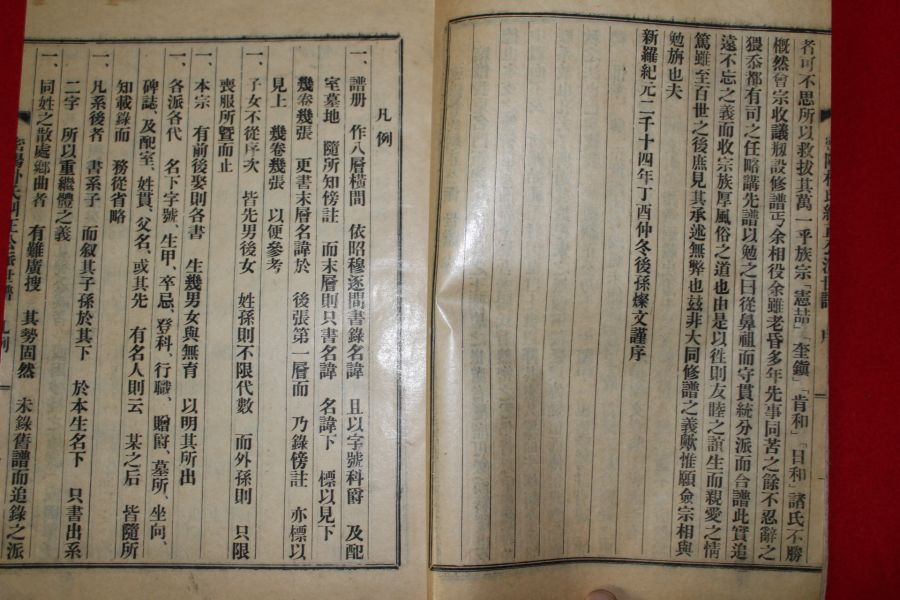 者可不思所以救拔其萬一乎族宗「憲喆」「奎鎭」「肯和」「日和」諸氏不勝
慨然會宗收議刱設修譜丐余相役余雖老昏多年先事同苦之餘不忍辭之
猥忝都有司之任略講先譜以勉之曰從鼻祖而守貫統分派而合譜此實追
遠不忘之義而收宗族厚風俗之道也由是以徃則友睦之誼生而親愛之情
篤雖至百世之後庶見其承述無弊也玆非大同修譜之義歟惟願僉宗相與
勉旃也夫
新羅紀元二千十四年丁酉仲冬後孫燦文謹序
凡例
一、譜册 作八層橫間 依昭穆逐間書錄名諱 且以字號科爵 及配
室墓地 隨所知傍註 而末層則只書名諱 名諱下 標以見下
幾卷幾張 更書末層名諱於 後張第一層而 乃錄傍註 亦標以
見上 幾卷幾張 以便參考
一、子女不從序次 皆先男後女 姓孫則不限代數 而外孫則 只限
喪服所曁而止
一、本宗 有前後娶則各書 生幾男女與無育 以明其所出
一、各派各代 名下字號、生甲、卒忌、登科、行職、贈爵、墓所、坐向、
碑誌、及配室、姓貫、父名、或其先 有名人則云 某之后 皆隨所
知載錄而 務從省略
一、凡系後者 書系子 而叙其子孫於其下 於本生名下 只書出系
二字 所以重繼體之義
一、同姓之散處鄕曲者 有難廣搜 其勢固然 未錄舊譜而追錄之派